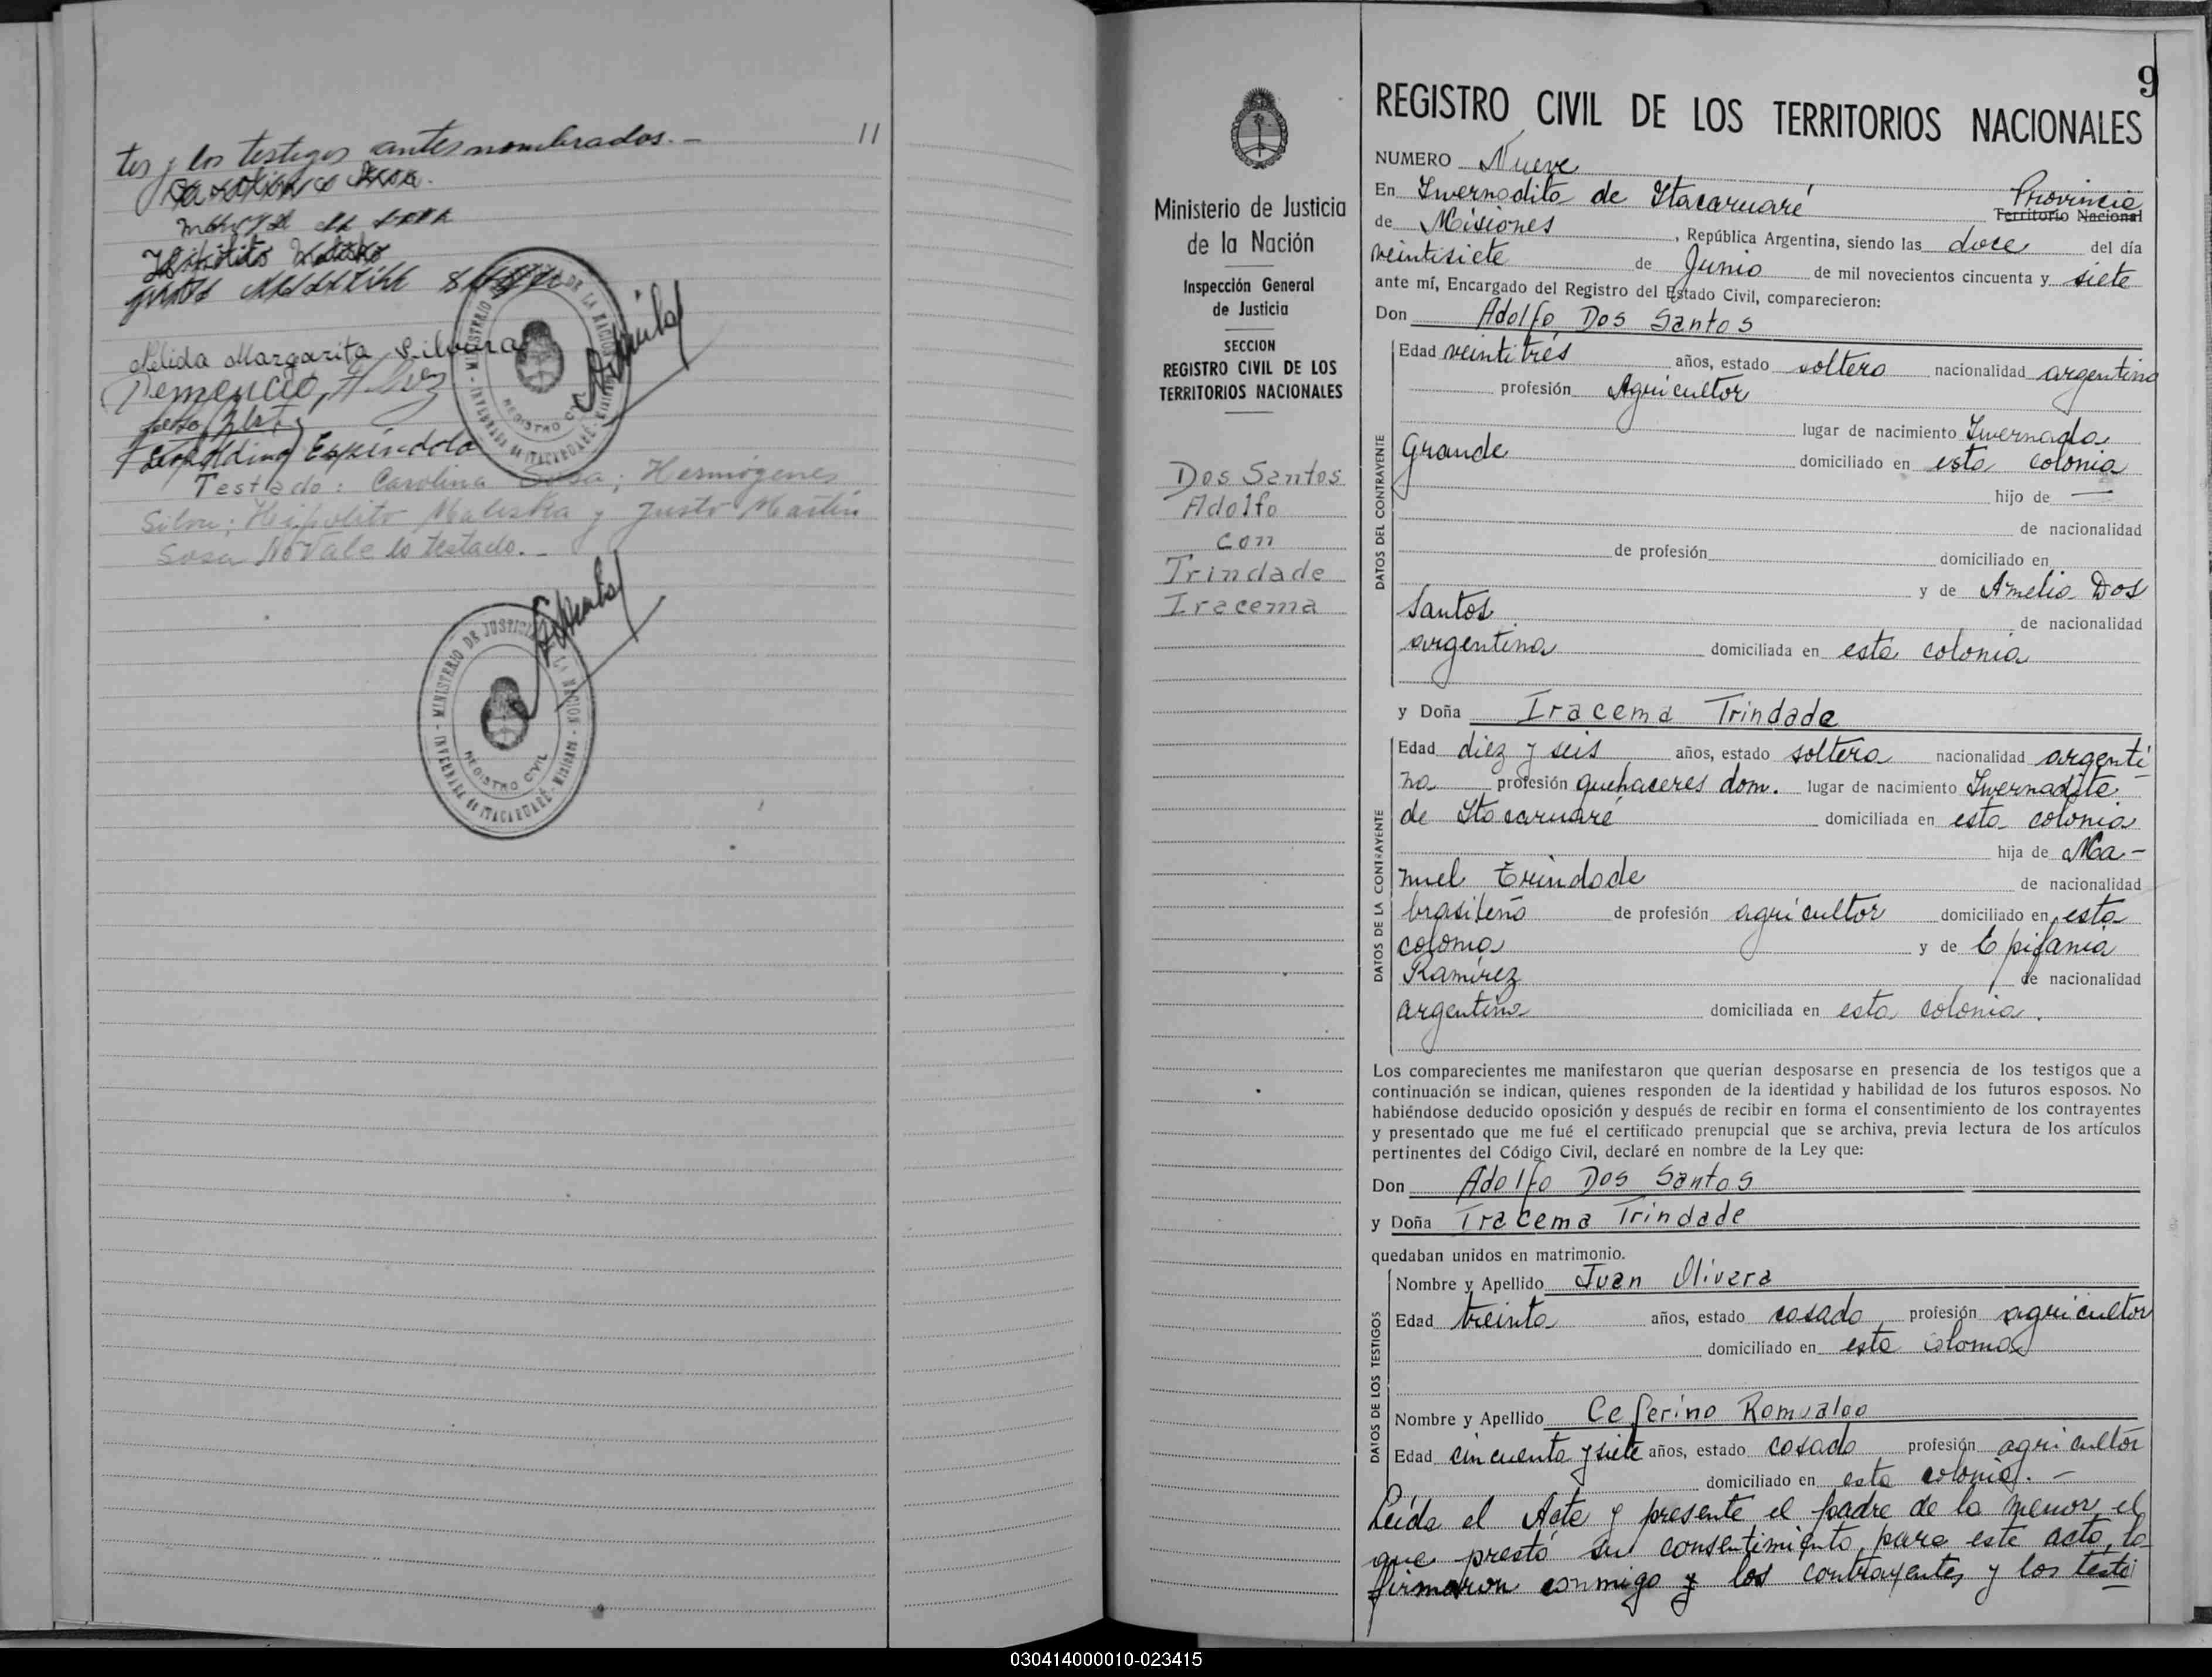 11
tes y los testigos antes nombrados.-
Nélida Margarita Silvera
Leopoldino Espíndola
Testado: Carolina Sosa; Hermógenes
Silva; Hipólito Maleska y Justo Martín
Sosa No Vale lo testado.-
MINISTERIO DE JUSTICIA DE LA NACION
REGISTRO CIVIL
INVERNADA de ITACARUARÉ - MISIONES
9
Ministerio de Justicia
de la Nación
Inspección General
de Justicia
SECCION
REGISTRO CIVIL DE LOS
TERRITORIOS NACIONALES
Dos Santos
Adolfo
con
Trindade
Iracema
REGISTRO CIVIL DE LOS TERRITORIOS NACIONALES
NUMERO Nueve
En Invernadita de Itacaruaré Provincia Territorio Nacional
de Misiones, República Argentina, siendo las doce del día
veintisiete de Junio de mil novecientos cincuenta y siete
ante mí, Encargado del Registro del Estado Civil, comparecieron:
Don Adolfo Dos Santos
DATOS DEL CONTRAYENTE
Edad veintitrés años, estado soltero nacionalidad argentino
profesión Agricultor
lugar de nacimiento Invernada
Grande domiciliado en esta colonia
hijo de —
de nacionalidad
de profesión domiciliado en
y de Amelia Dos
Santos de nacionalidad
argentina domiciliada en esta colonia
y Doña Iracema Trindade
DATOS DE LA CONTRAYENTE
Edad diez y seis años, estado soltera nacionalidad argenti-
na profesión quehaceres dom. lugar de nacimiento Invernadita
de Itacaruaré domiciliada en esta colonia
hija de Ma-
nuel Trindade de nacionalidad
brasileño de profesión agricultor domiciliado en esta
colonia y de Epifania
Ramírez de nacionalidad
argentina domiciliada en esta colonia.
Los comparecientes me manifestaron que querían desposarse en presencia de los testigos que a
continuación se indican, quienes responden de la identidad y habilidad de los futuros esposos. No
habiéndose deducido oposición y después de recibir en forma el consentimiento de los contrayentes
y presentado que me fué el certificado prenupcial que se archiva, previa lectura de los artículos
pertinentes del Código Civil, declaré en nombre de la Ley que:
Don Adolfo Dos Santos
y Doña Iracema Trindade
quedaban unidos en matrimonio.
DATOS DE LOS TESTIGOS
Nombre y Apellido Juan Olivera
Edad treinta años, estado casado profesión agricultor
domiciliado en esta colonia
Nombre y Apellido Ceferino Romualdo
Edad cincuenta y siete años, estado casado profesión agricultor
domiciliado en esta colonia.-
Leída el Acta y presente el padre de la menor el
que prestó su consentimiento para este acto, la
firmaron conmigo y los contrayentes y los testi
030414000010-023415